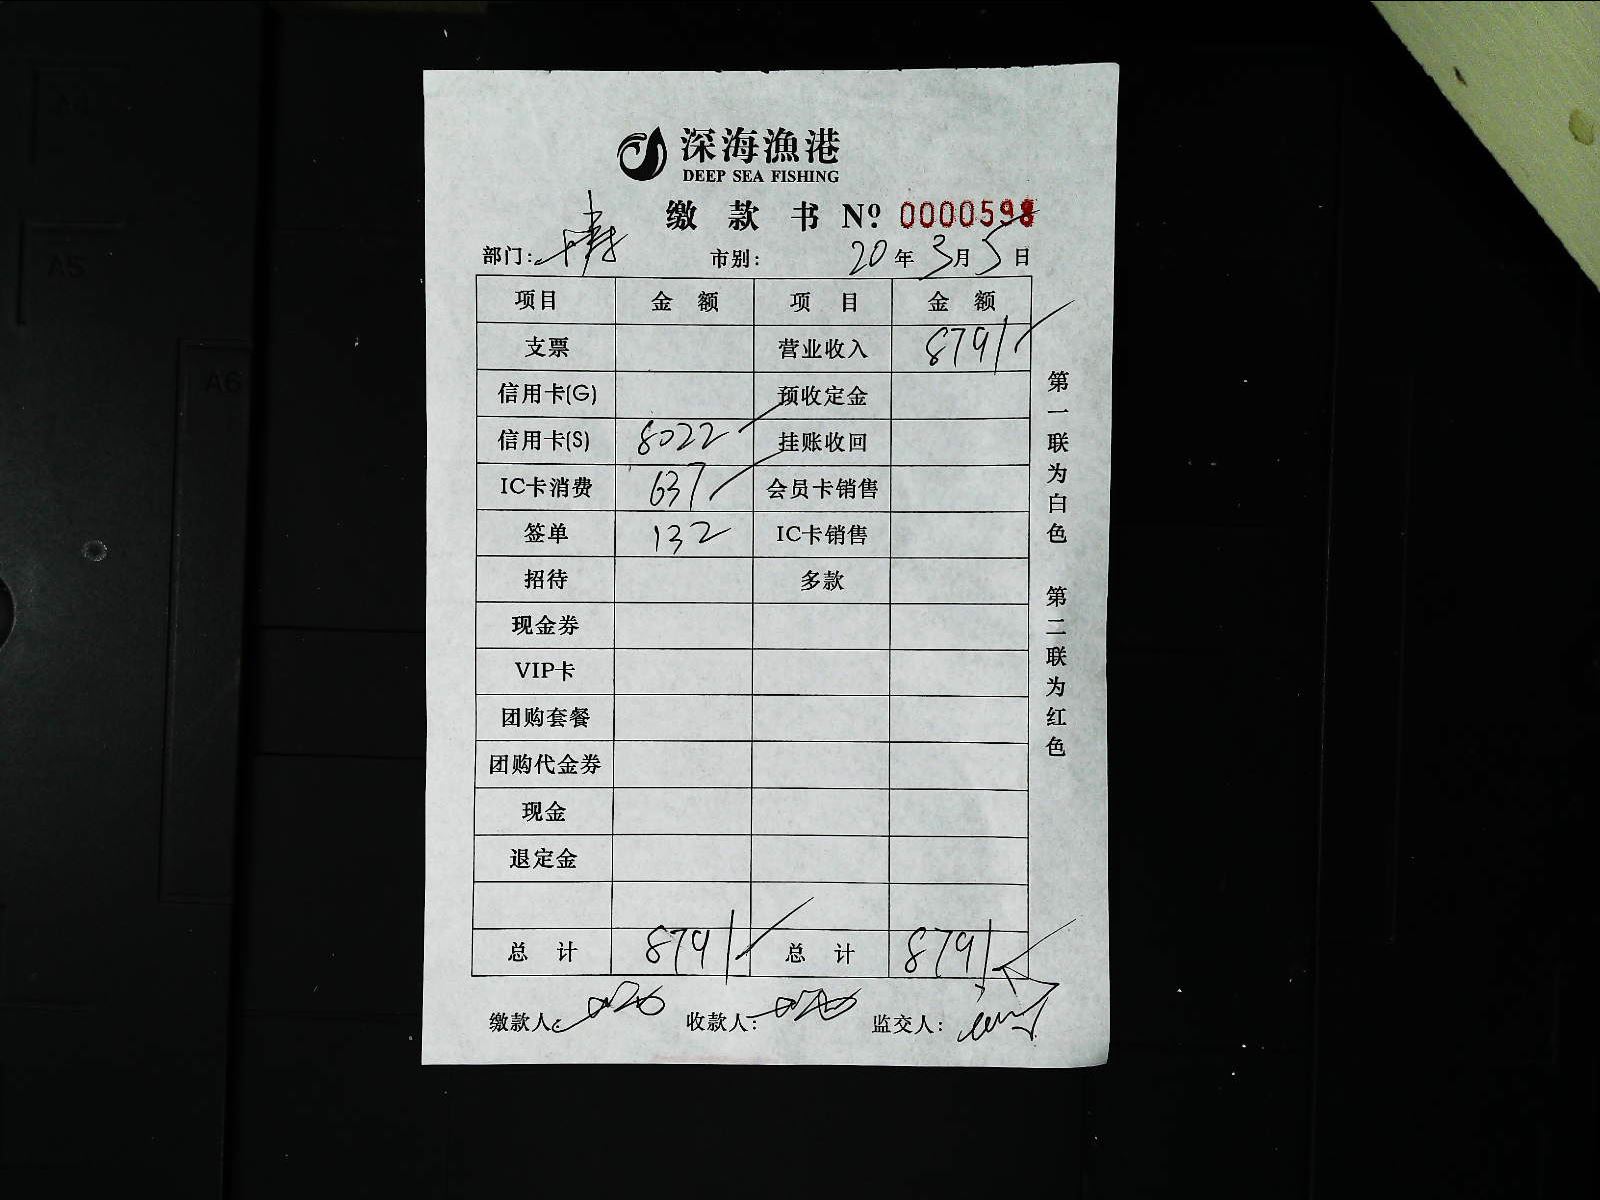 深海渔港
DEEP SEA FISHING
缴款书 Nº 0000598
部门: 市别: 20年3月5日
项目 金额 项目 金额
支票 营业收入 8791
信用卡(G) 预收定金
信用卡(S) 8022 挂账收回
IC卡消费 637 会员卡销售
签单 132 IC卡销售
招待 多款
现金券
VIP卡
团购套餐
团购代金券
现金
退定金
总计 8791 总计 8791
缴款人: 收款人: 监交人:
第一联为白色 第二联为红色
A5
A6